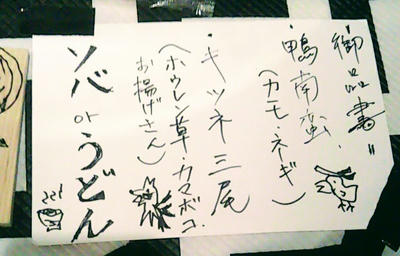 御品書"
・鴨南蛮.
(カモ・ネギ)
・キツネ三尾
(ホウレン草・カマボコ.
お揚げさん)
ソバorうどん